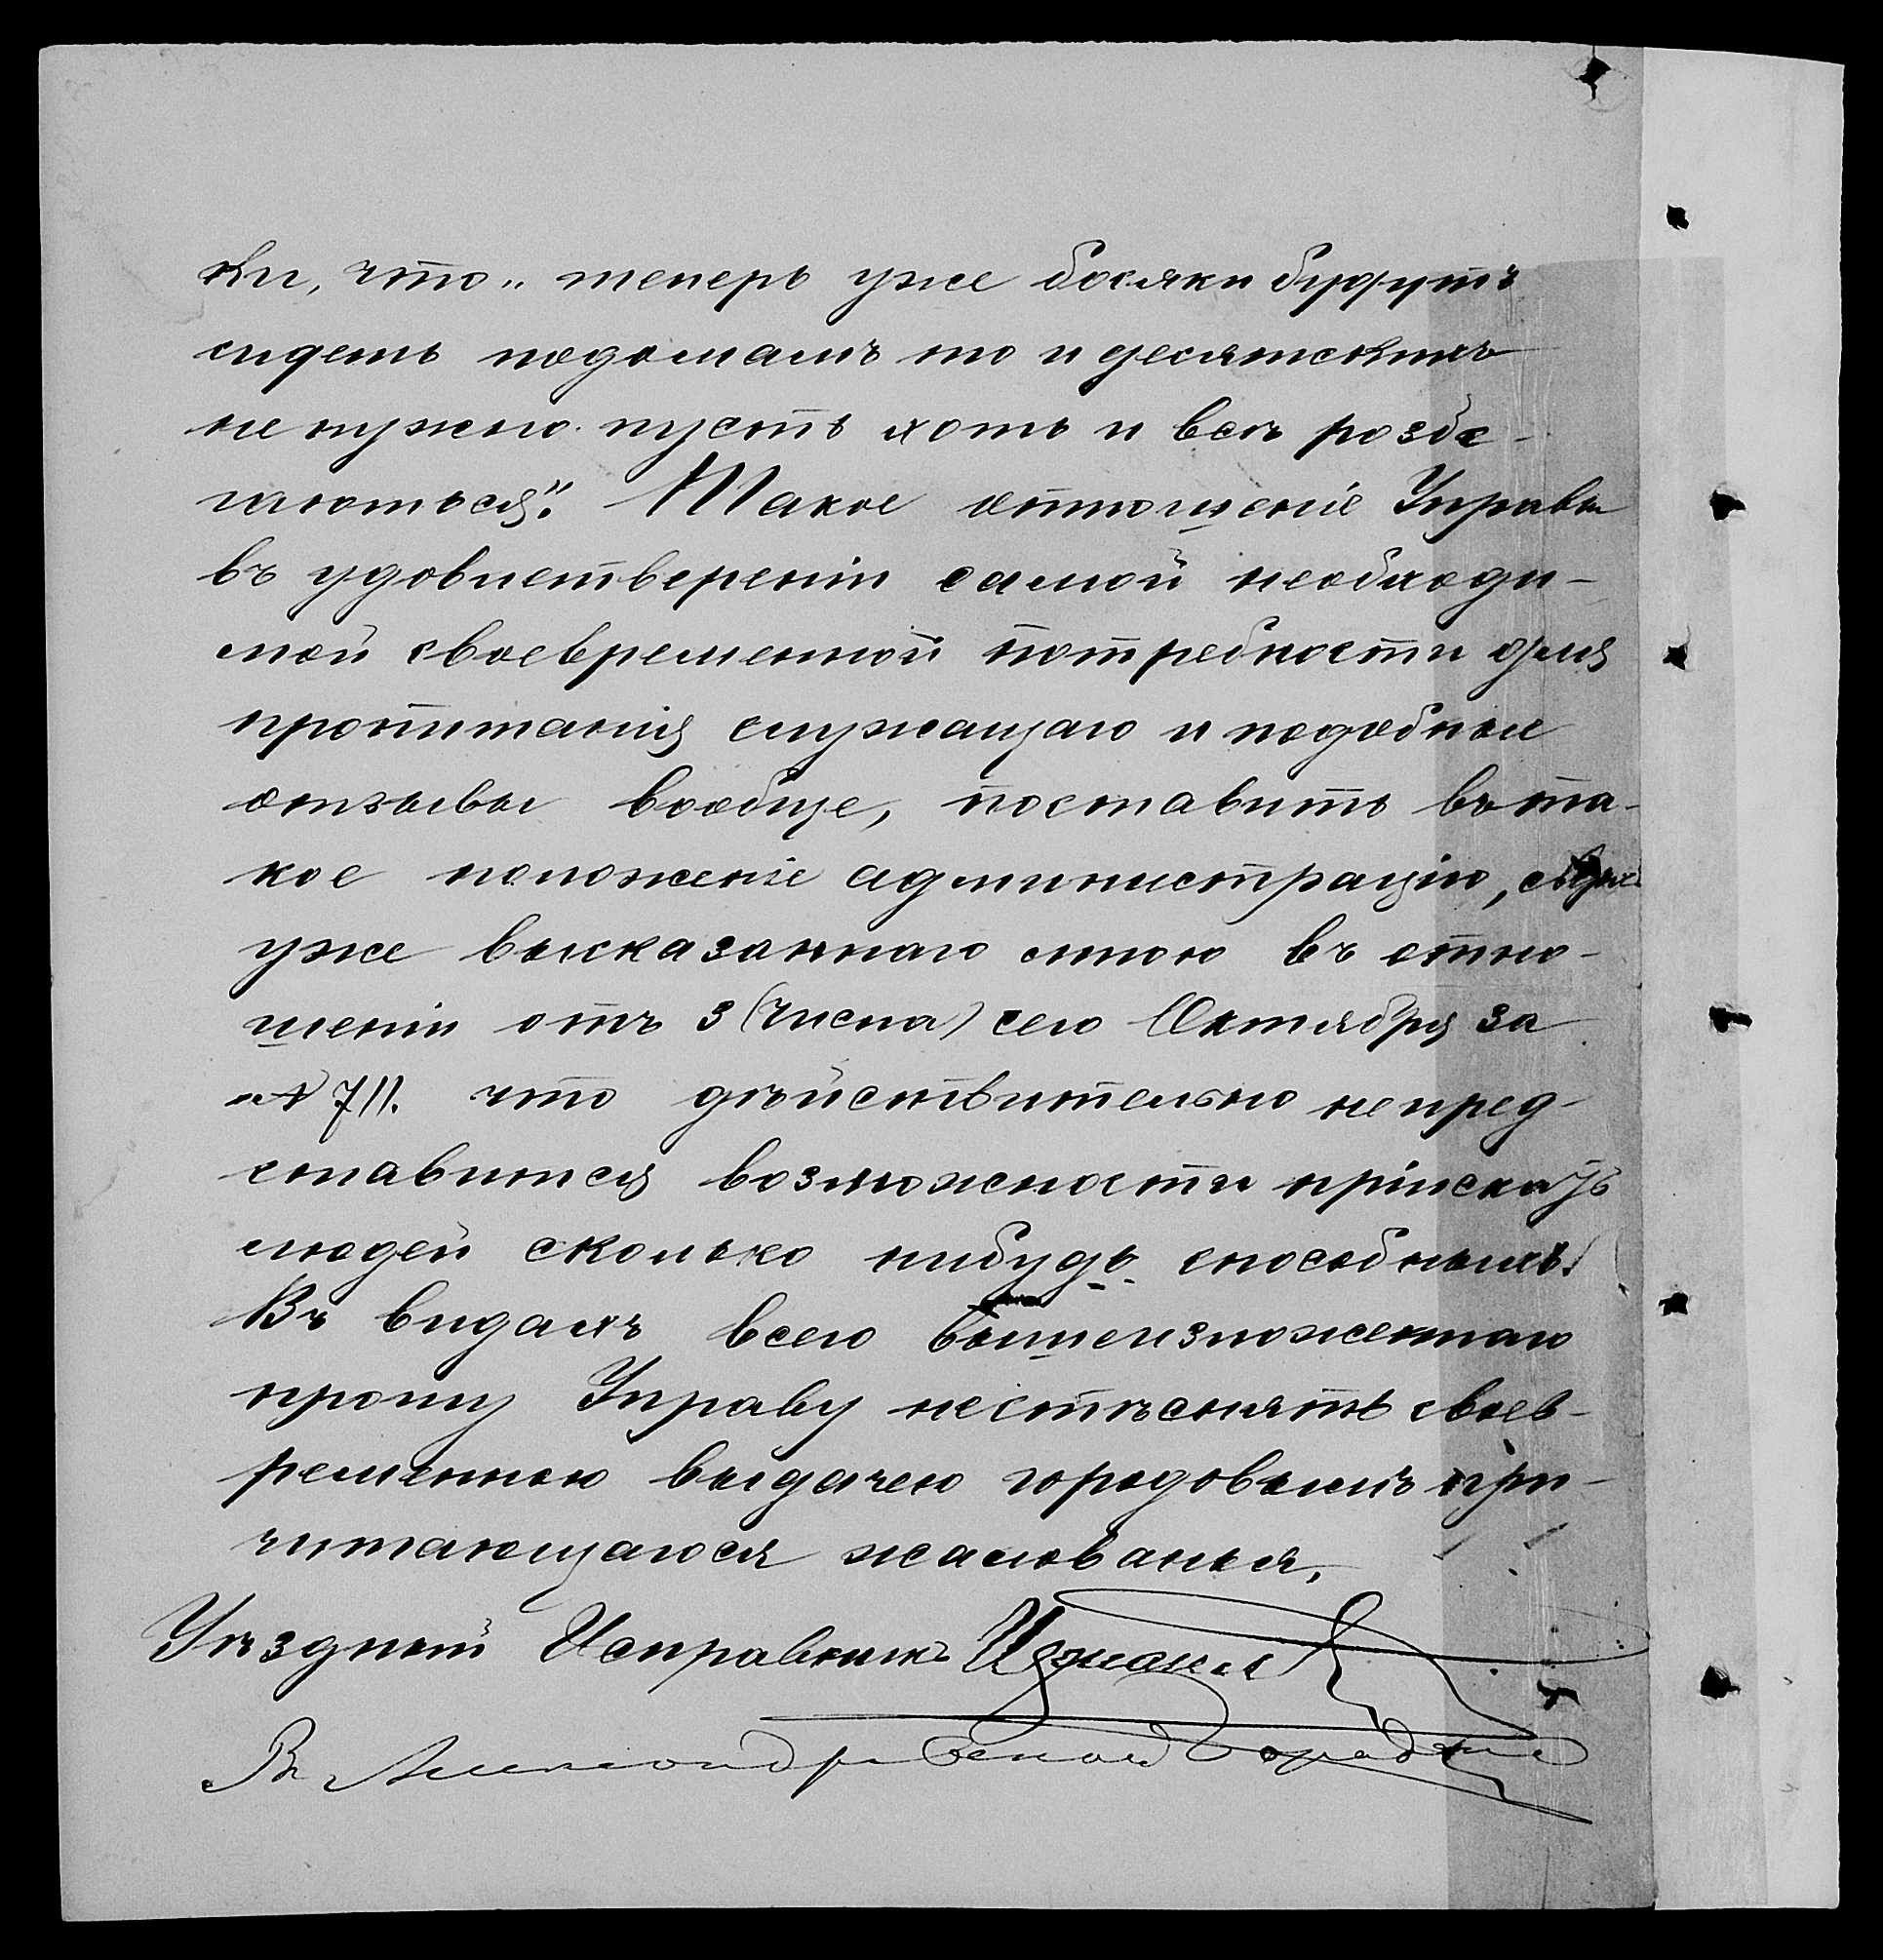 ки, что „теперь уже босяки будутъ
сидеть подомамъ то и десятскихъ
не нужно пусть хоть и всѣ розбе-
гаються". Такое отношеніе Управы
въ удовлетвереніи самой необходи-
мой своевременной потребности для
пропитанія служащаго и подобные
отзывы вообще, поставитъ въ та-
кое положеніе администрацію,
уже высказаннаго мною въ отно-
шеніи отъ 3 (числа) сего Октября за
№ 711. что дѣйствительно непред-
ставится возможности пріискать
людей сколько нибудь способныхъ.
Въ видахъ всего вышеизложеннаго
прошу Управу нестѣснять своев-
ременною выдачею городовымъ при-
читающагося жалованья.
Уѣздный Исправникъ
В Александровскую Городскую